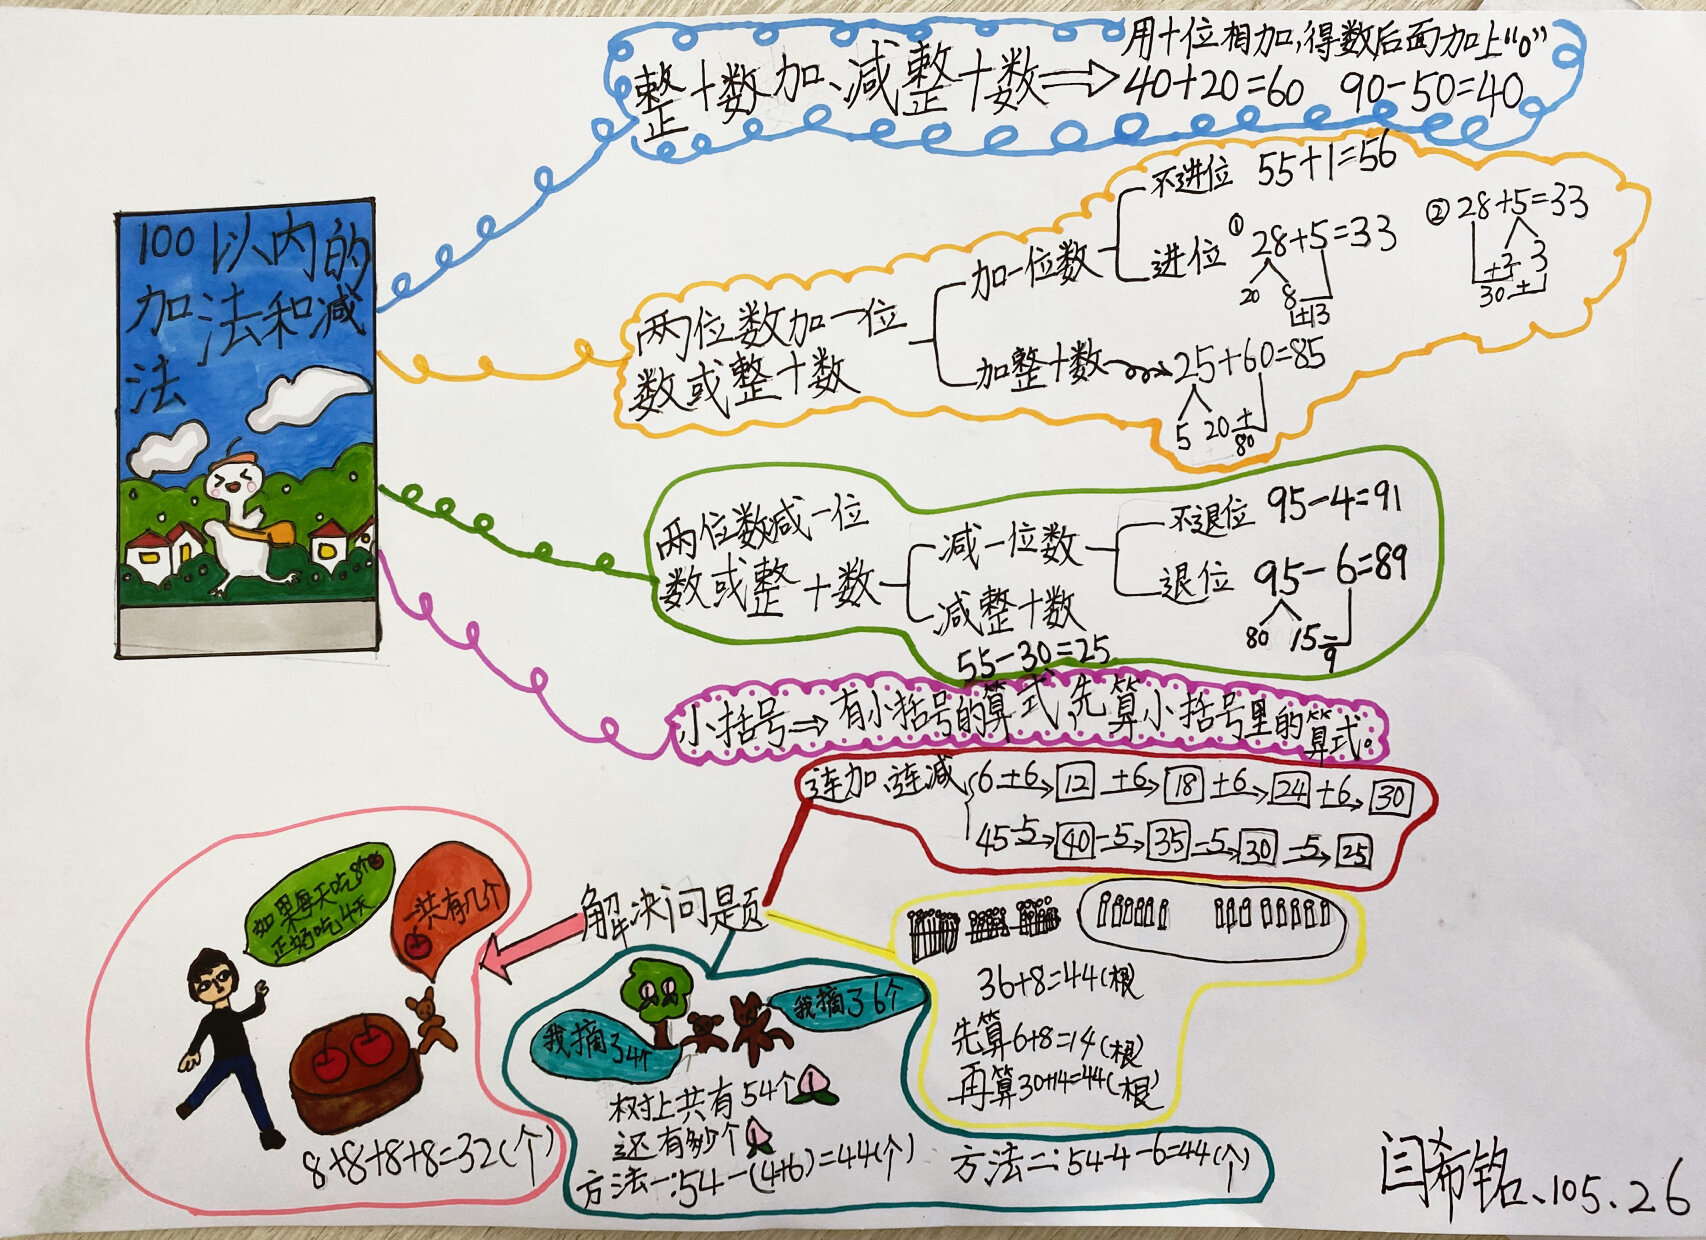 100以内的
加法和减
法
整十数加、减整十数⇒
用十位相加,得数后面加上"0"
40+20=60 90-50=40
两位数加一位
数或整十数
加一位数
不进位 55+1=56
进位 ①28+5=33
20 8
+13
②28+5=33
+2 3
30 +
加整十数 25+60=85
5 20 +
80
两位数减一位
数或整十数
减一位数
不退位 95-4=91
退位 95-6=89
80 15 -
9
减整十数
55-30=25
小括号⇒有小括号的算式,先算小括号里的算式。
连加、连减
6 +6→ 12 +6→ 18 +6→ 24 +6→ 30
45 -5→ 40 -5→ 35 -5→ 30 -5→ 25
解决问题
如果每天吃8个
正好吃4天
一共有几个
8+8+8+8=32(个)
我摘了4个
我摘了6个
树上共有54个
还有多少个
方法一:54-(4+6)=44(个) 方法二:54-4-6=44(个)
36+8=44(根)
先算6+8=14(根)
再算30+14=44(根)
闫希铭、105.26